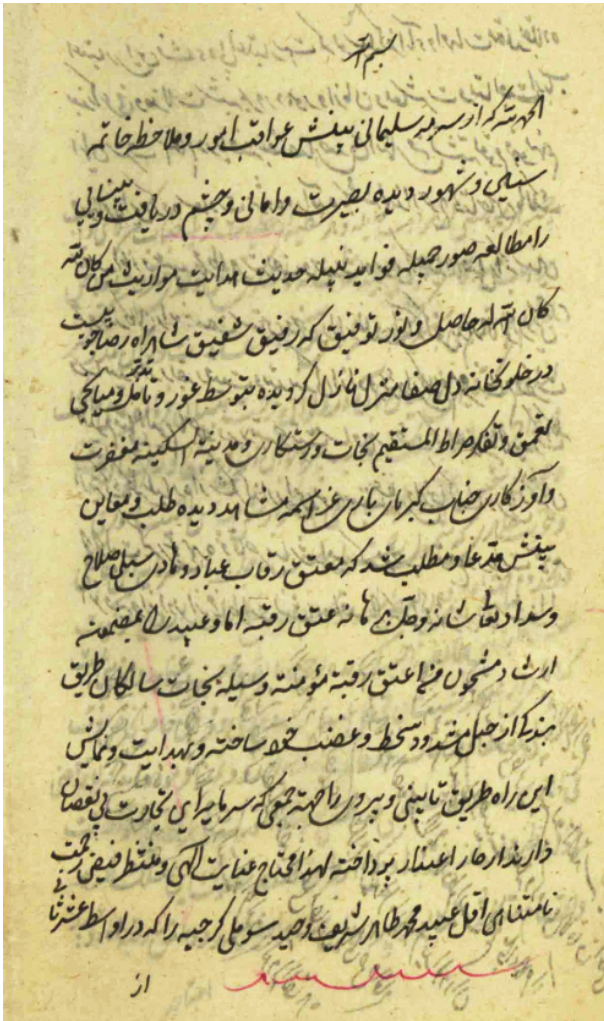 بسم الله
الحمد لله که از سرمه سلیمانی بینش عواقب امور و ملاحظه خاتمه
سنین و شهور دیده بصیرت و امانی و چشم دریافت و بینایی
را مطالعه صور جمیله فواید نبیله حدیث هدایت مواریث من کان لله
کان الله له حاصل و بنور توفیق که رفیق شفیق شاهراه رضاجوییست
در خلوتخانه دل صفا منزل نازل گردیده بتوسط غور و تامل و تدبر و میانجی
تعمق و تفکر صراط المستقیم نجات و رستکاری و مدینة السکینه مغفرت
و آمرزکاری جناب کبریای باری عز اسمه مشاهد دیده طلب و معاین
بینش مدعا و مطلب شد که معتق رقاب عباد و هادی سبیل صلاح
و سداد تعالی شانه و جل برهانه عتق رقبه اما و عبید را بمضمون
ارشاد مشحون من اعتق رقبة مؤمنة وسیله نجات سالکان طریق
بندگی از حبل مشدود سخط و غضب خود ساخته و بهدایت و نمایش
این راه طریق تابینی و پیروی را جهة جمعی که سرمایه این تجارت بی نقصان
دارند از خار اعتذار پرداخته لهذا محتاج عنایت الهی و منتظر فیض رحمت
نامتناهی اقل عبید محمد طاهر شریف وحید سوملی کرجیه را که در اواسط عشر ثانی
از